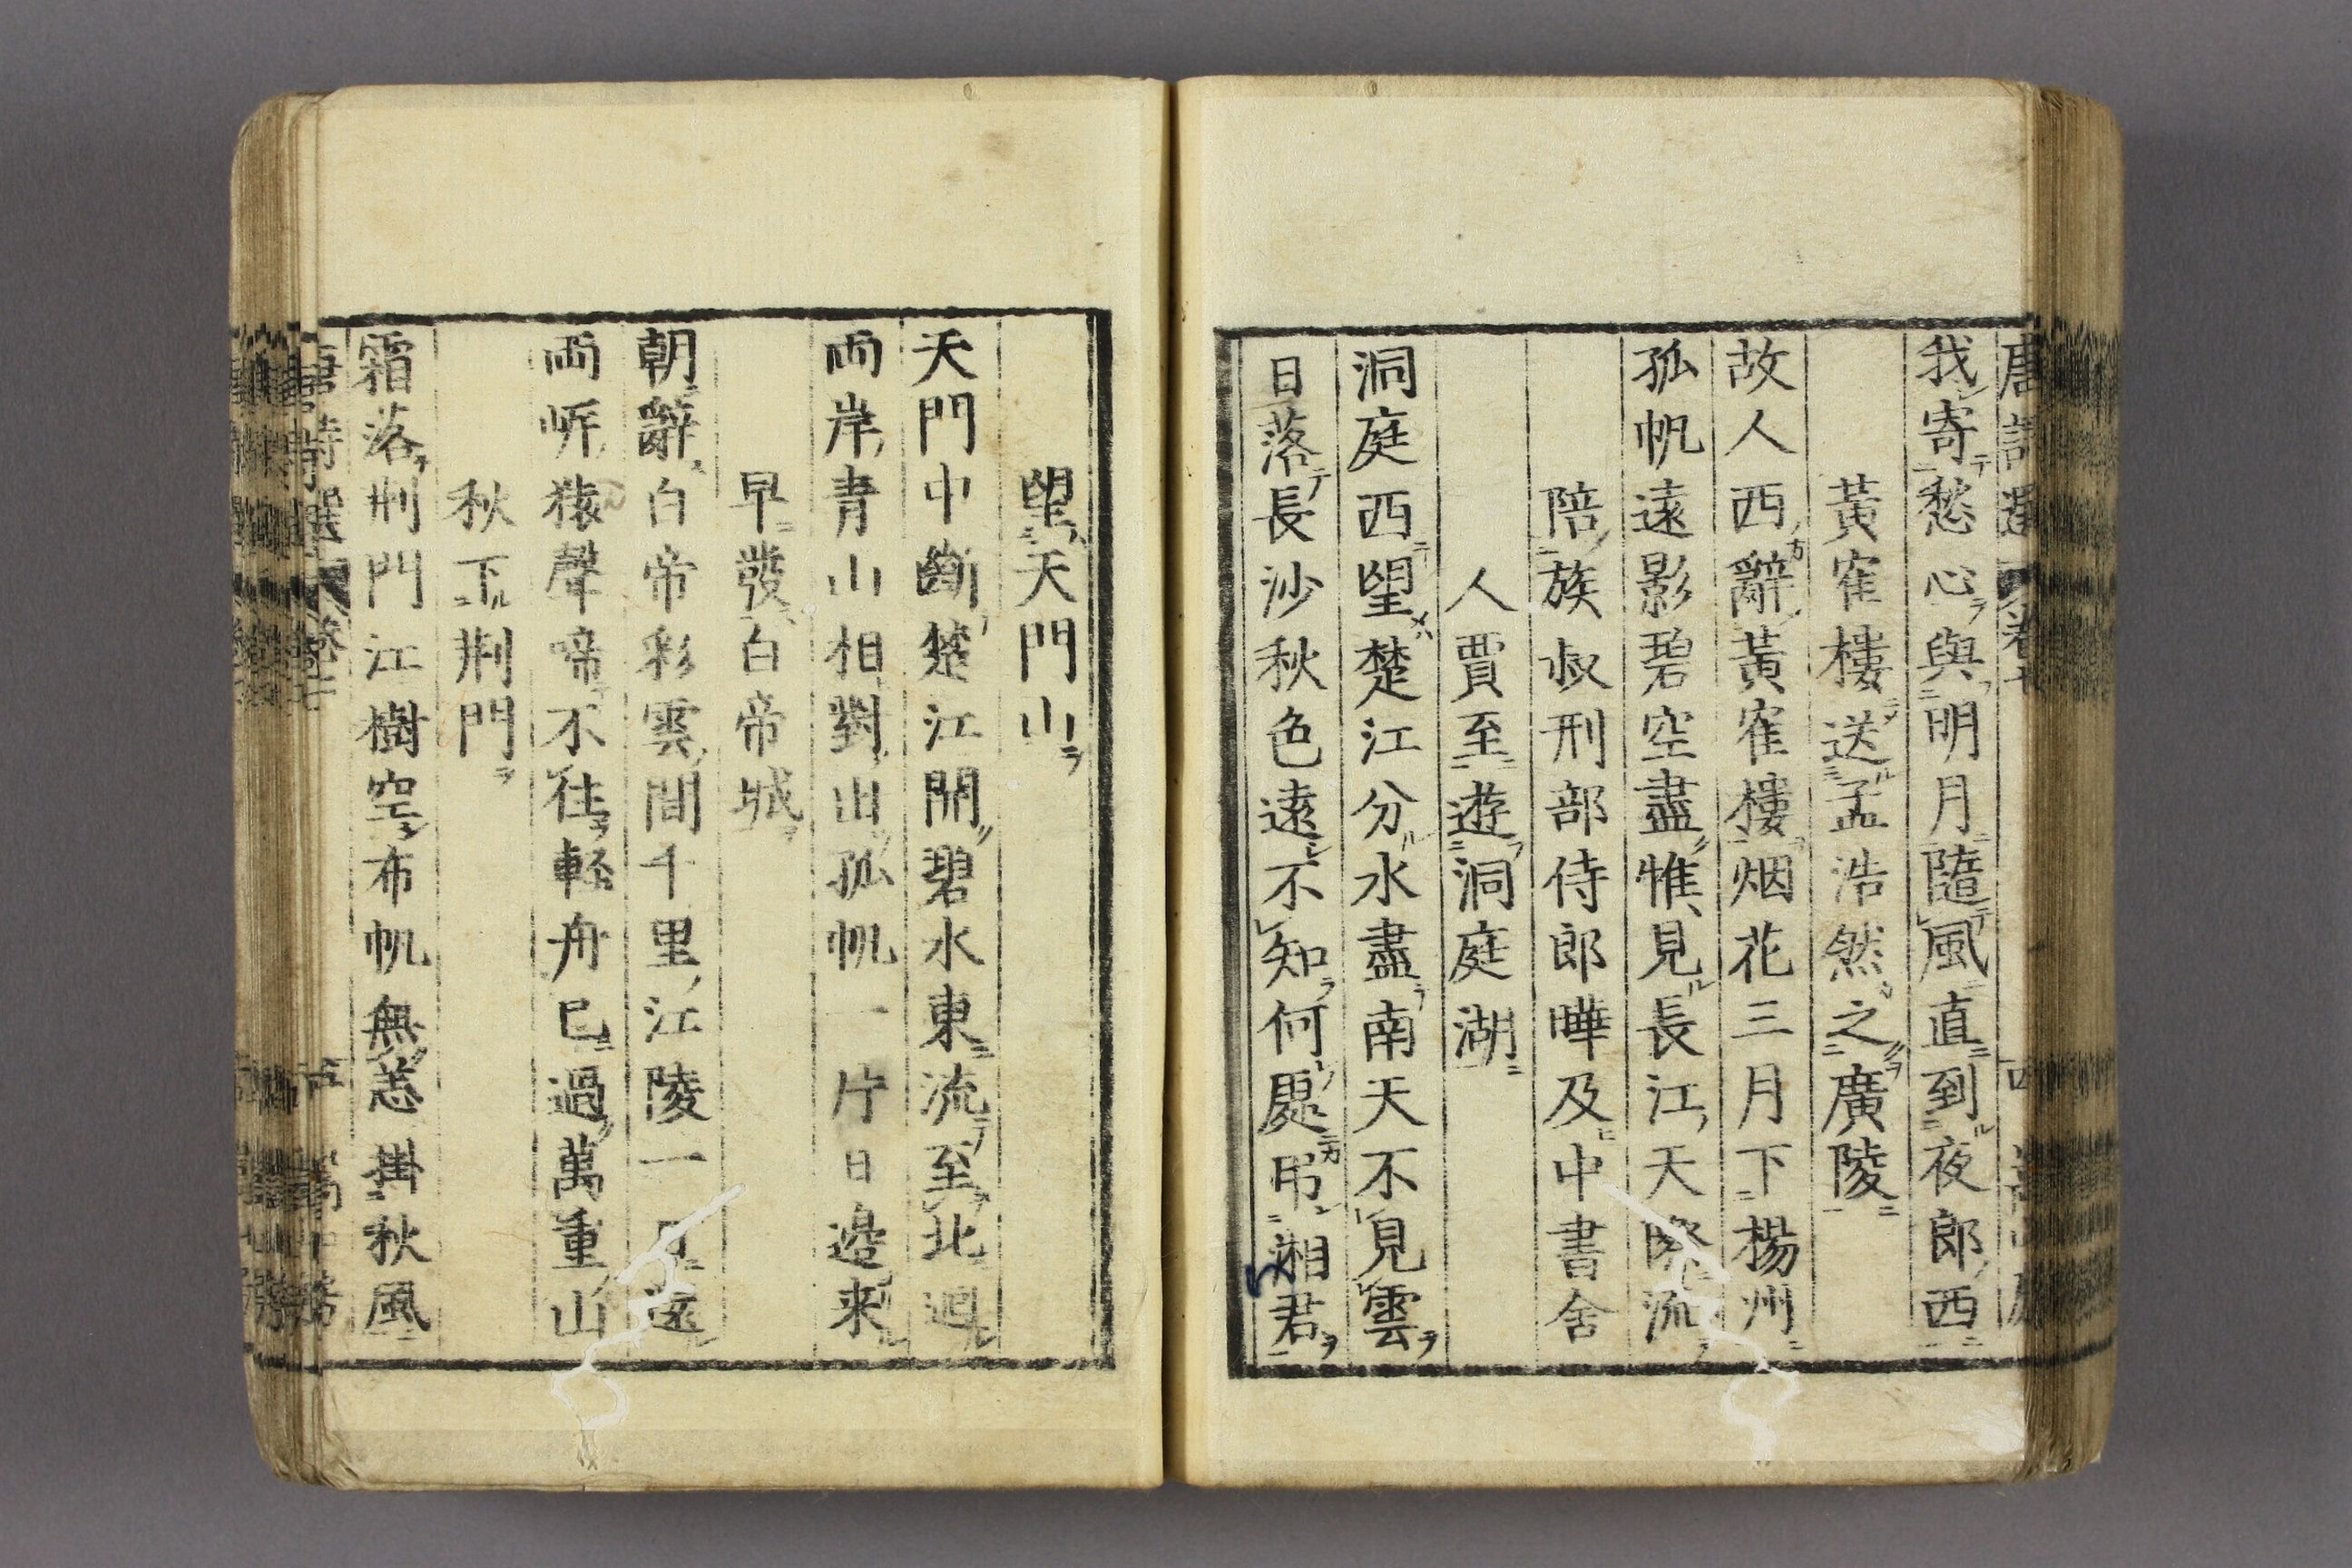 我寄愁心與明月隨風直到夜郎西
黃寉樓送孟浩然之廣陵
故人西辭黃寉樓烟花三月下楊州
孤帆遠影碧空盡惟見長江天際流
陪族叔刑部侍郎曄及中書舍
人賈至遊洞庭湖
洞庭西望楚江分水盡南天不見雲
日落長沙秋色遠不知何處吊湘君
望天門山
天門中斷楚江開碧水東流至北迴
兩岸青山相對出孤帆一片日邊来
早發白帝城
朝辭白帝彩雲間千里江陵一日還
兩岍猿聲啼不住輕舟已過萬重山
秋下荆門
霜落荆門江樹空布帆無恙掛秋風